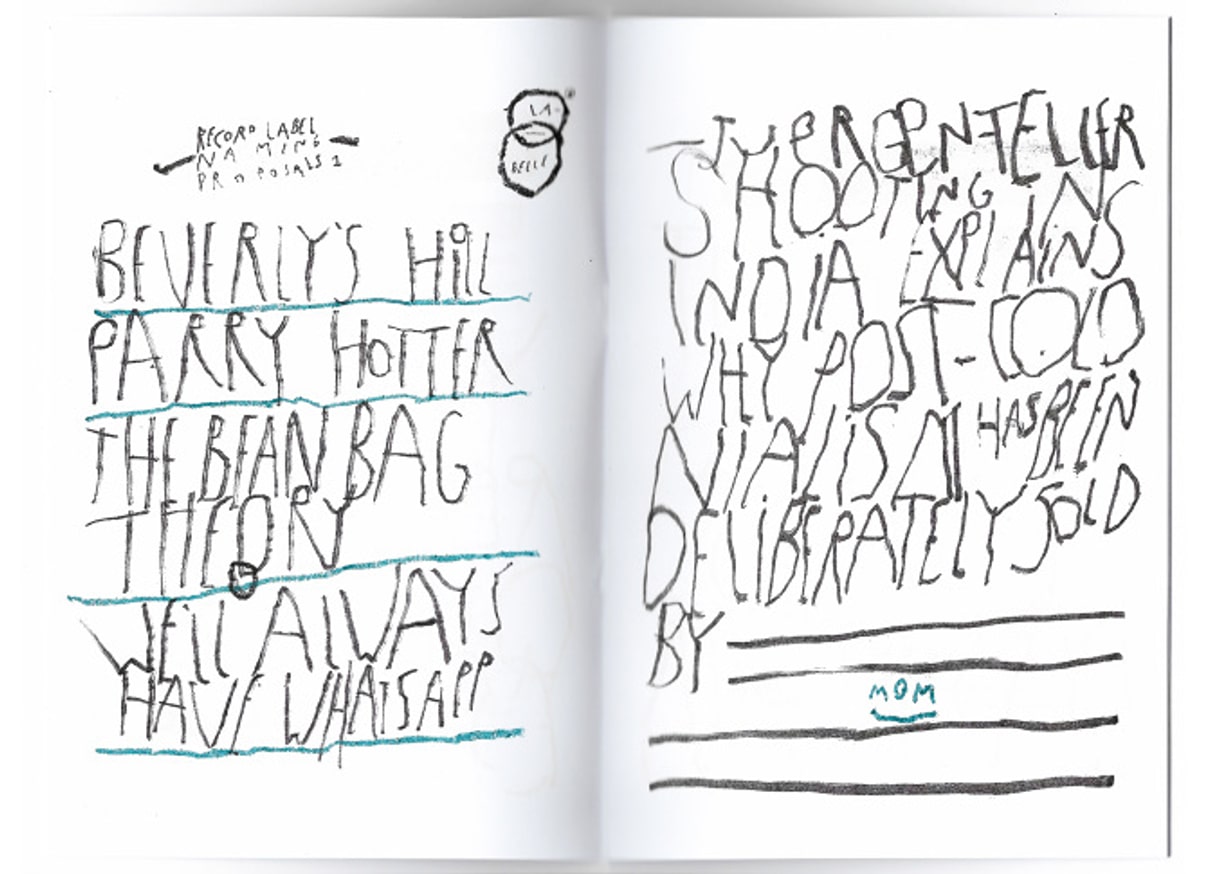 RECORD LABEL
NAMING
PROPOSALS 1
LA
BELLE
BEVERLY'S HILL
PARRY HOTTER
THE BEAN BAG
THEORY
WE'LL ALWAYS
HAVE WHATSAPP
SHOOTING IN
INDIA EXPLAINS
WHY POST-COLO
NIALISM HAS BEEN
DELIBERATELY SOLD
BY
MOM